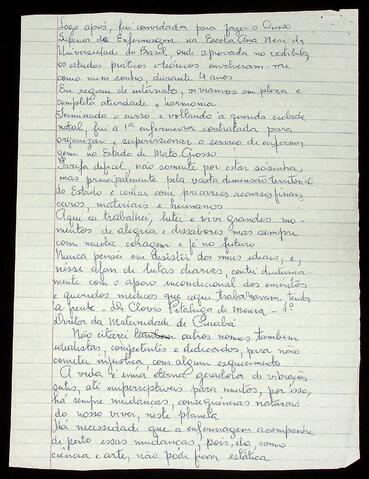 Logo após, fui convidada para fazer o Curso
Superior de Enfermagem na Escola Ana Neri da
Universidade do Brasil, onde aprovada no vestibular
os estudos práticos e teóricos envolveram-me
como num sonho, durante 4 anos
Em regime de internato, vivíamos em plena e
completa atividade e harmonia
Terminado o curso e voltando à querida cidade
natal, fui a 1ª enfermeira contratada para
organizar, e supervisionar o serviço de enferma
gem no Estado de Mato Grosso
Tarefa difícil, não somente por estar sòsinha,
mas principalmente pela vasta dimensão territorial
do Estado e contar com precários recursos finan
ceiros, materiais e humanos
Aqui eu trabalhei, lutei e vivi grandes mo-
mentos de alegria e dissabores mas sempre
com muita coragem e fé no futuro
Nunca pensei em desistir dos meus ideais, e,
nesse afan de lutas diárias, contei diuturna-
mente com o apoio incondicional dos eméritos
e queridos médicos que aqui trabalhavam tendo
à frente - Dr Clovis Pitaluga de Moura - 1º
Diretor da Maternidade de Cuiabá
Não citarei outros nomes também
idealistas, competentes e dedicados, para não
cometer injustiça com algum esquecimento
A vida é uma eterna geradora de vibrações
até imperceptíveis para muitos, por isso,
há sempre mudanças, consequências naturais
do nosso viver, neste planeta
Há necessidade que a enfermagem acompanhe
de perto essas mudanças, pois, ela, como
ciência e arte, não pode ficar estática